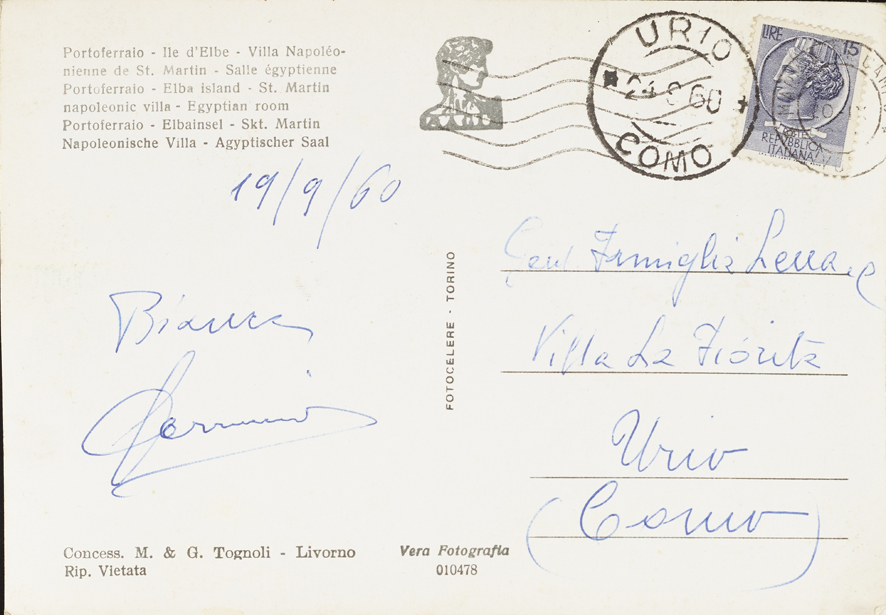 Portoferraio - Ile d'Elbe - Villa Napoléo-
nienne de St. Martin - Salle égyptienne
Portoferraio - Elba island - St. Martin
napoleonic villa - Egyptian room
Portoferraio - Elbainsel - Skt. Martin
Napoleonische Villa - Agyptischer Saal
URIO
24 9 60
COMO
LIRE 15
REPUBBLICA
ITALIANA
19/9/60
Bianca
FOTOCELERE - TORINO
Gent Famiglia
Villa La Fiorita
Urio
(Como)
Concess. M. & G. Tognoli - Livorno
Rip. Vietata
Vera Fotografia
010478